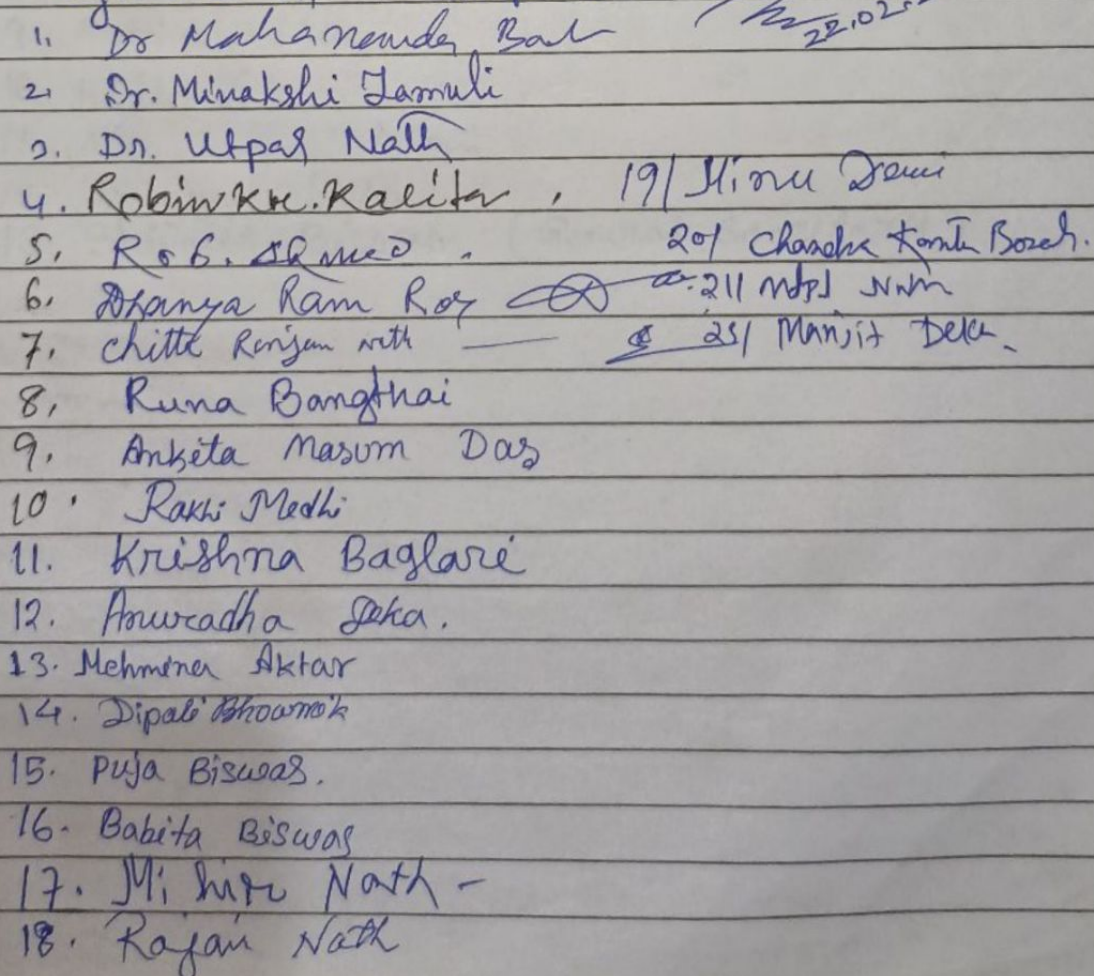 22.02.
1. Dr Mahananda
2. Dr. Minakshi Jamuli
3. Dr. Utpal Nath
4. Robin Kr. Kalita, 19/ Minu Devi
5. R. 20/ Chandra Kanta Borah.
6. Dhanya Ram Roy 21/
7. Chitta Ranjan Nath 25/ Manjit Deka
8. Runa Bangthai
9. Ankita Masum Das
10. Rakhi Medhi
11. Krishna Baglari
12. Anuradha Deka.
13. Mehmina Aktar
14. Dipali Bhowmik
15. Puja Biswas.
16. Babita Biswas
17. Mihir Nath -
18. Rajan Nath